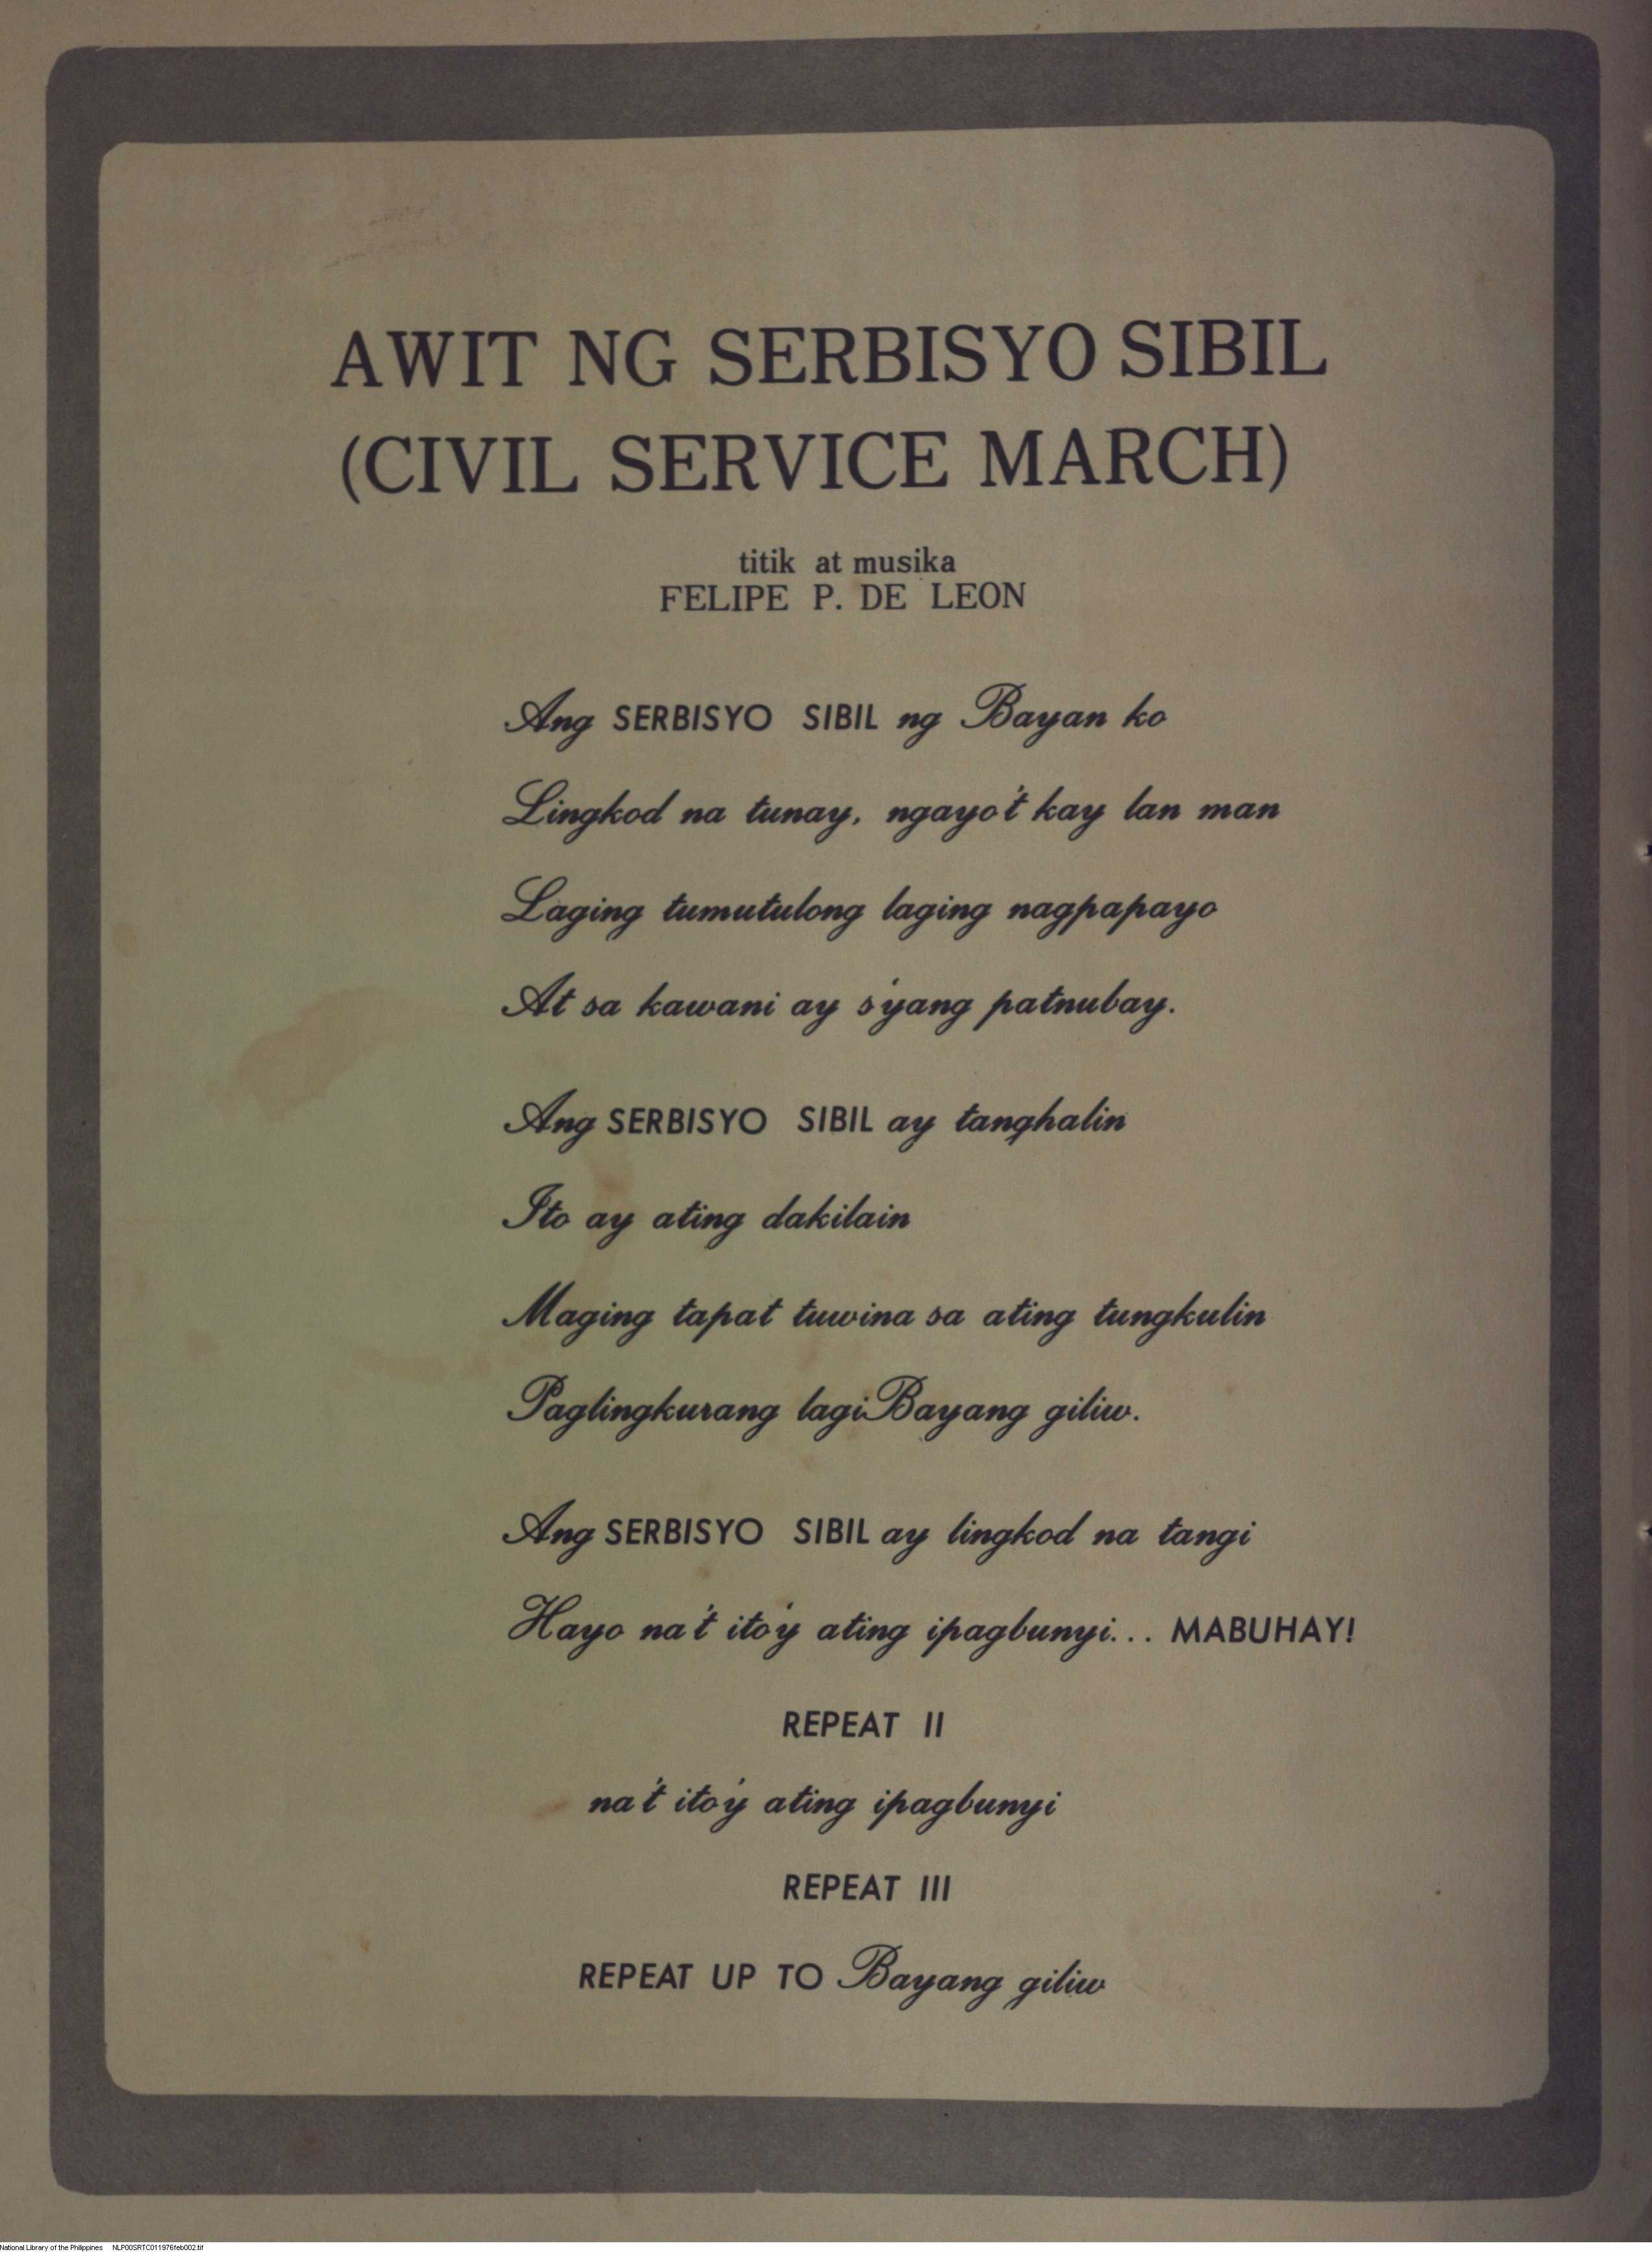 AWIT NG SERBISYO SIBIL
(CIVIL SERVICE MARCH)
titik at musika
FELIPE P. DE LEON
Ang SERBISYO SIBIL ng Bayan ko
Lingkod na tunay, ngayo't kay lan man
Laging tumutulong laging nagpapayo
At sa kawani ay s'yang patnubay.
Ang SERBISYO SIBIL ay tanghalin
Ito ay ating dakilain
Maging tapat tuwina sa ating tungkulin
Paglingkurang lagi Bayang giliw.
Ang SERBISYO SIBIL ay lingkod na tangi
Hayo na't ito'y ating ipagbunyi... MABUHAY!
REPEAT II
na't ito'y ating ipagbunyi
REPEAT III
REPEAT UP TO Bayang giliw
National Library of the Philippines NLP00SRTC011976feb002.tif